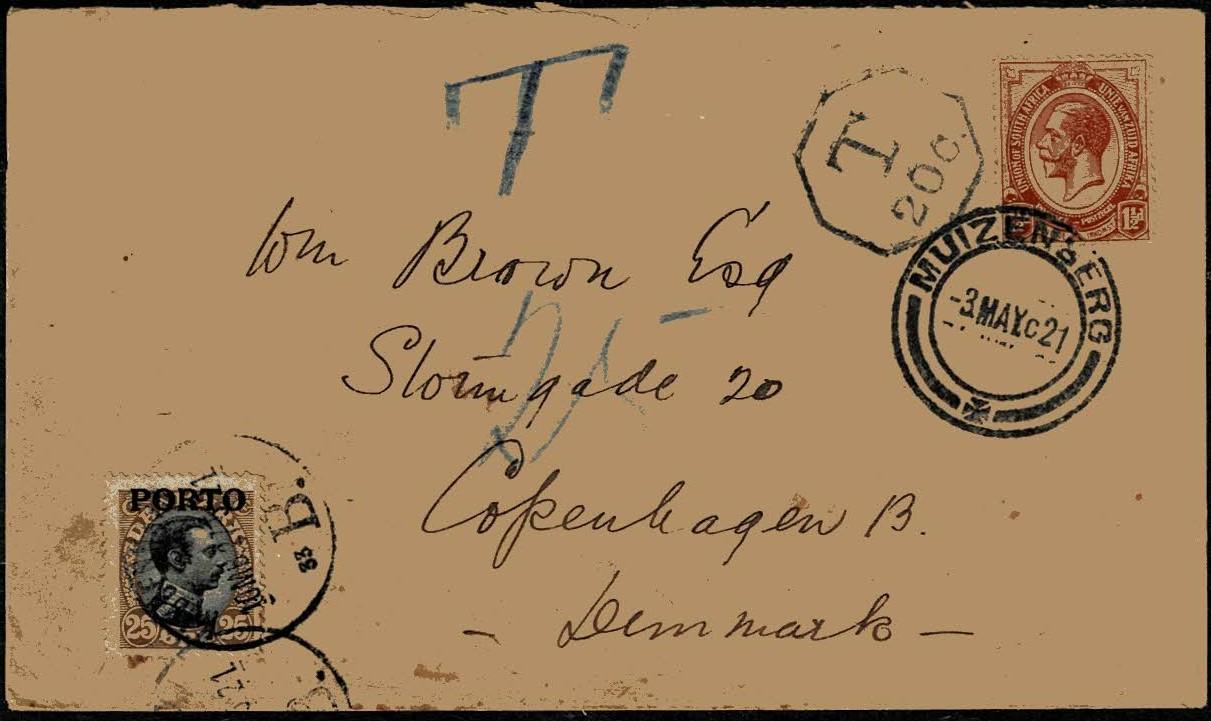 T
T
20c.
UNION OF SOUTH AFRICA UNIE VAN ZUID AFRIKA
POSTZEGEL
1½d
MUIZENBERG
-3 MAY C 21
Wm Brown Esq
Stormgade 20
25
Copenhagen B.
- Denmark -
PORTO
25 25
33 B.
21